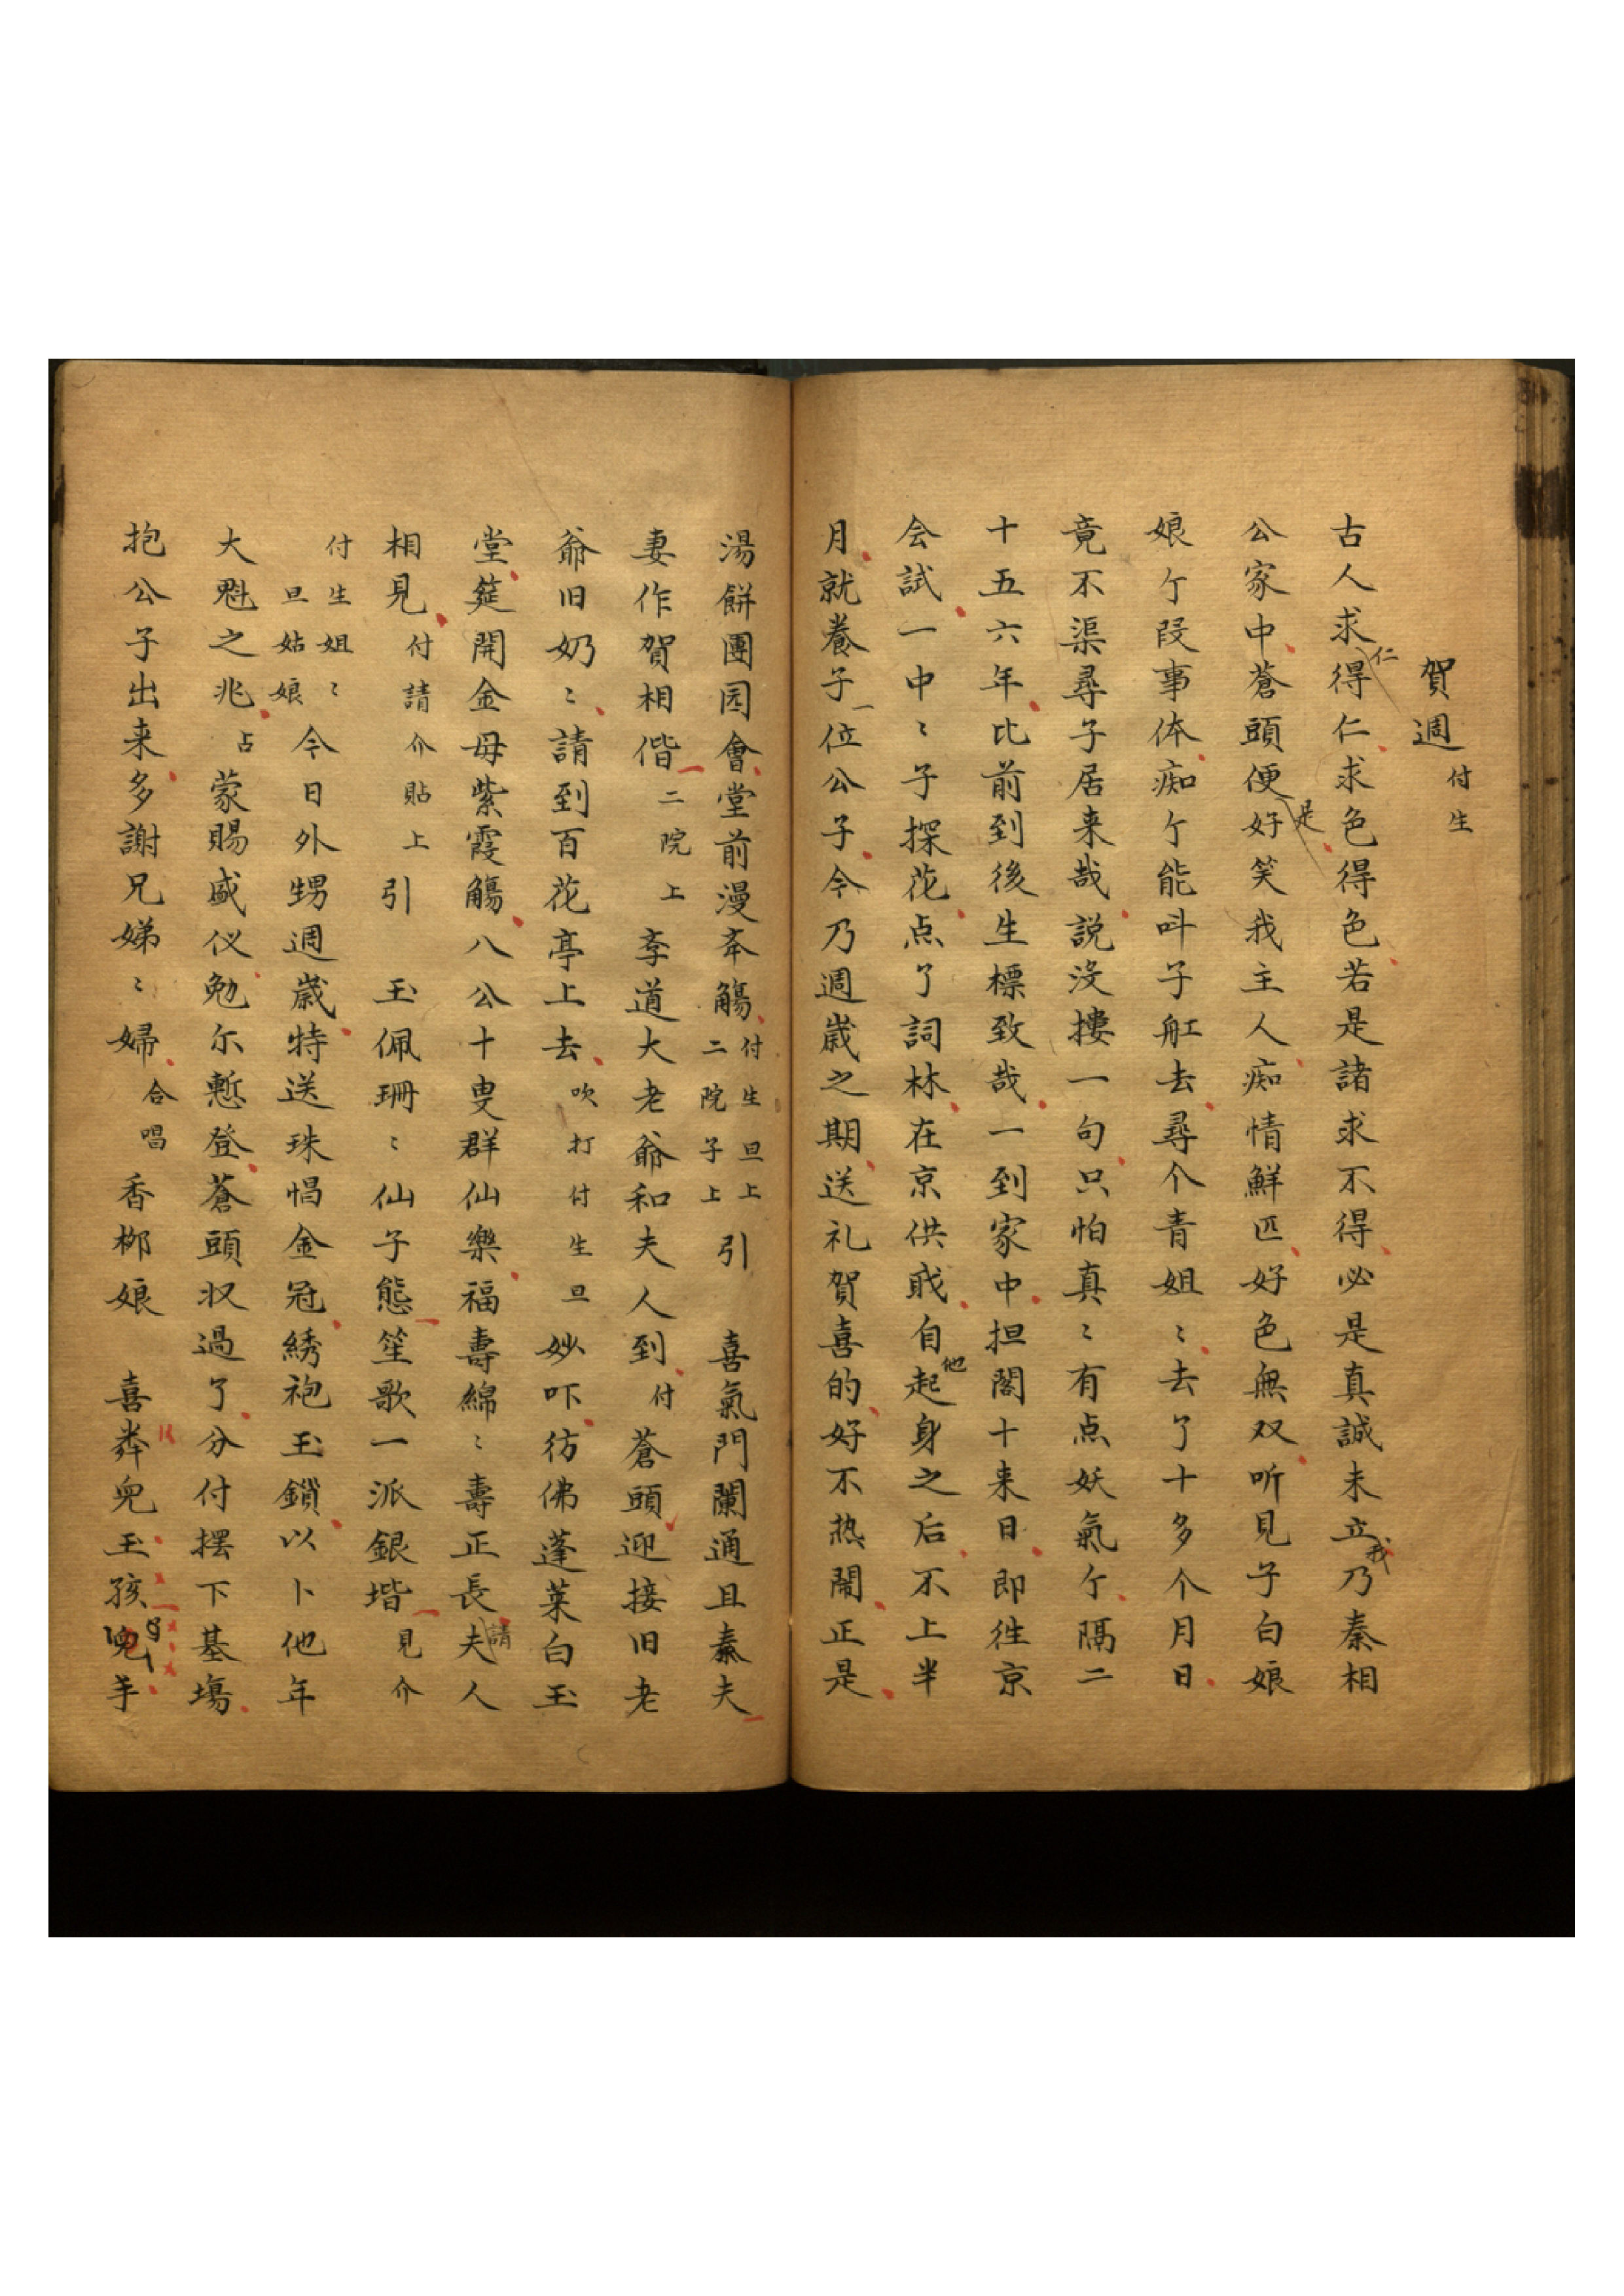 賀週 付生
古人求仁得仁求色得色若是諸求不得必是真誠未立我乃秦相
公家中蒼頭便是好笑我主人痴情鮮匹好色無双听見子白娘
娘个段事体痴个能呌子舡去尋个青姐〻去了十多个月日
竟不渠尋子居来哉説没摟一句只怕真〻有点妖氣个隔二
十五六年比前到後生標致哉一到家中担閣十来日即往京
会試一中〻子探花点了詞林在京供戝自他起身之后不上半
月就養子一位公子今乃週歳之期送礼賀喜的好不热鬧正是
湯餅團园會堂前漫夲觴 付生旦上二院子上 引 喜氣門闌通且秦夫
妻作賀相偕 二院上 李道大老爺和夫人到 付 蒼頭迎接旧老
爺旧奶〻請到百花亭上去 吹打付生旦 妙吓彷彿蓬莱白玉
堂筵開金母紫霞觴八公十叟群仙樂福壽綿〻壽正長請夫人
相見 付請介貼上 引 玉佩珊〻仙子態笙歌一派銀堦 見介
付生姐〻旦姑娘 今日外甥週歳特送珠㡎金冠綉袍玉鎖以卜他年
大魁之兆 占 蒙賜盛仪勉尔慙登蒼頭収過了分付擺下基塲
抱公子出来多謝兄娣〻婦 合唱 香梛娘 喜粦兒玉孩兒手